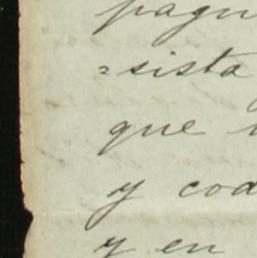 pagu
=sista
que
y cod
y en